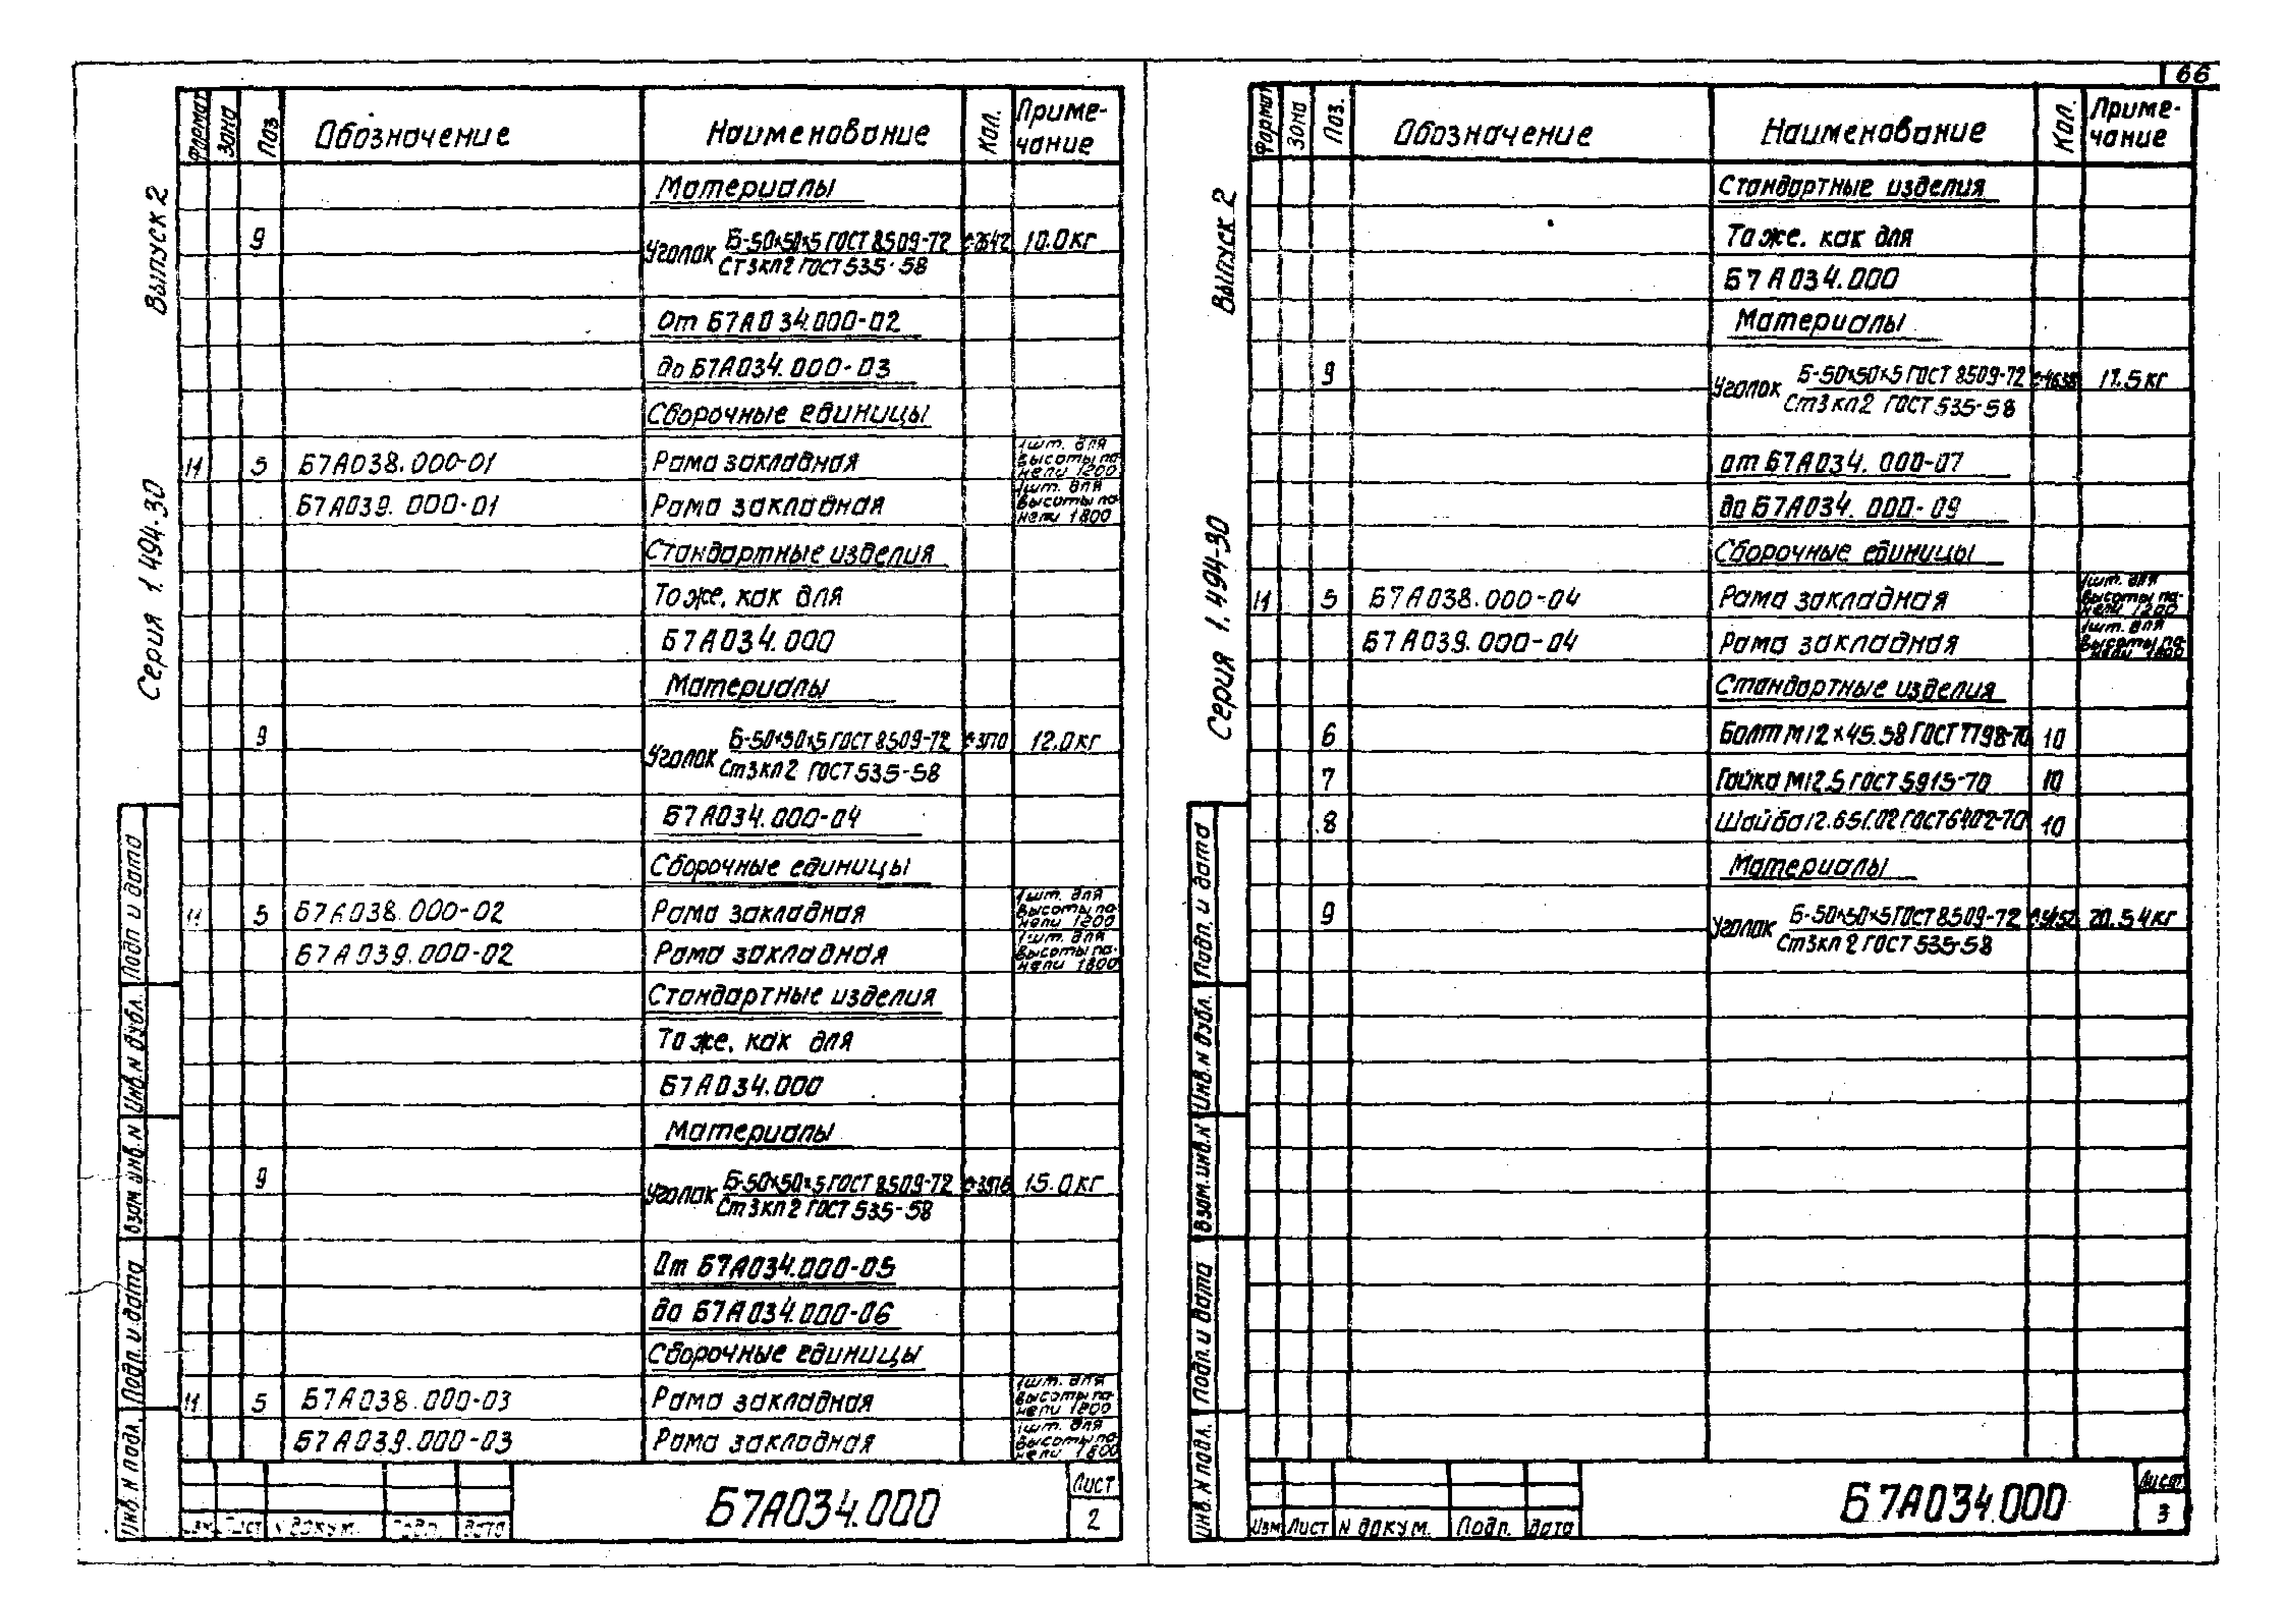 66
Выпуск 2
Серия 1.494-30
Формат Зона Поз Обозначение Наименование Кол. Примечание
Материалы
9 Уголок Б-50×50×5 ГОСТ 8509-72 ℓ=2642 10.0кг
Ст3кп2 ГОСТ 535-58
От Б7А034.000-02
до Б7А034.000-03
Сборочные единицы
11 5 Б7А038.000-01 Рама закладная 1шт. для высоты панели 1200
Б7А039.000-01 Рама закладная 1шт. для высоты панели 1800
Стандартные изделия
То же, как для
Б7А034.000
Материалы
9 Уголок Б-50×50×5 ГОСТ 8509-72 ℓ=3170 12.0кг
Ст3кп2 ГОСТ 535-58
Б7А034.000-04
Сборочные единицы
11 5 Б7А038.000-02 Рама закладная 1шт. для высоты панели 1200
Б7А039.000-02 Рама закладная 1шт. для высоты панели 1800
Стандартные изделия
То же, как для
Б7А034.000
Материалы
9 Уголок Б-50×50×5 ГОСТ 8509-72 15.0кг
Ст3кп2 ГОСТ 535-58
От Б7А034.000-05
до Б7А034.000-06
Сборочные единицы
11 5 Б7А038.000-03 Рама закладная 1шт. для высоты панели
Б7А039.000-03 Рама закладная 1шт. для высоты панели 1800
Подп и дата
Инв. N дубл.
Взам. инв. N
Подп. и дата
Инв. N подл.
Изм Лист N докум. Подп. Дата
Б7А034.000
Лист
2
Выпуск 2
Серия 1.494-30
Формат Зона Поз. Обозначение Наименование Кол. Примечание
Стандартные изделия
То же, как для
Б7А034.000
Материалы
9 Уголок Б-50×50×5 ГОСТ 8509-72 ℓ=4638 17.5кг
Ст3кп2 ГОСТ 535-58
от Б7А034.000-07
до Б7А034.000-09
Сборочные единицы
11 5 Б7А038.000-04 Рама закладная 1шт. для высоты панели 1200
Б7А039.000-04 Рама закладная 1шт. для высоты панели 1800
Стандартные изделия
6 Болт М12×45.58 ГОСТ 7798-70 10
7 Гайка М12.5 ГОСТ 5915-70 10
8 Шайба 12.65Г.02 ГОСТ 6402-70 10
Материалы
9 Уголок Б-50×50×5 ГОСТ 8509-72 20.54кг
Ст3кп2 ГОСТ 535-58
Подп. и дата
Инв. N дубл.
Взам. инв. N
Подп. и дата
Инв. N подл.
Изм Лист N докум. Подп. Дата
Б7А034.000
Лист
3